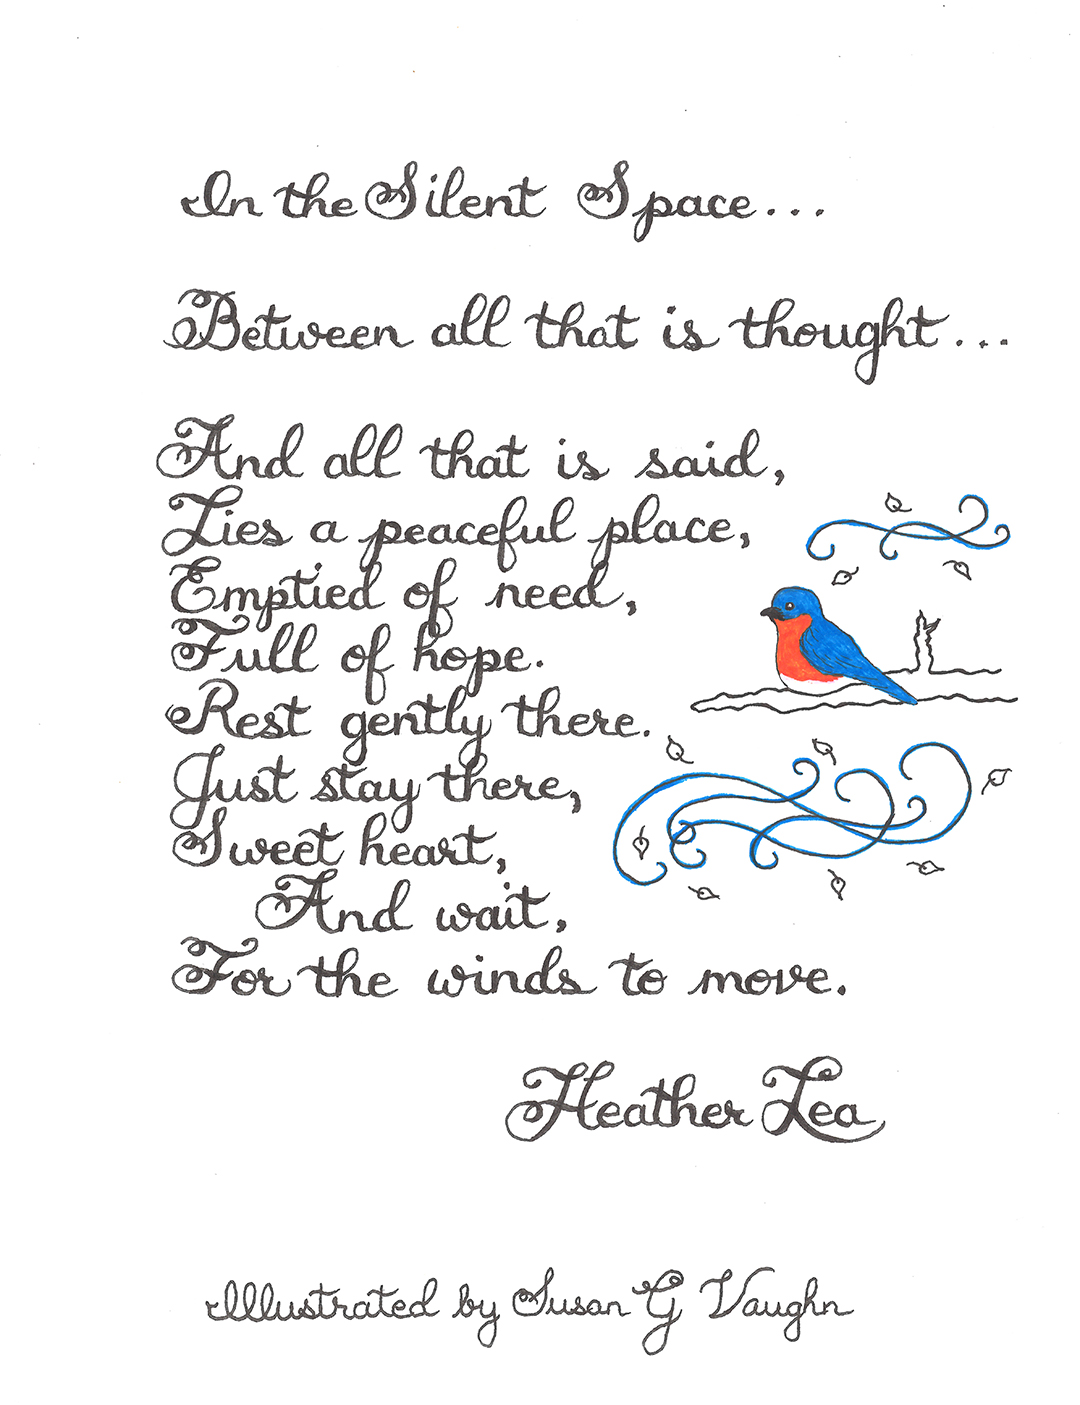 In the Silent Space...
Between all that is thought...
And all that is said,
Lies a peaceful place,
Emptied of need,
Full of hope.
Rest gently there.
Just stay there,
Sweet heart,
And wait,
For the winds to move.
Heather Lea
Illustrated by Susan G Vaughn